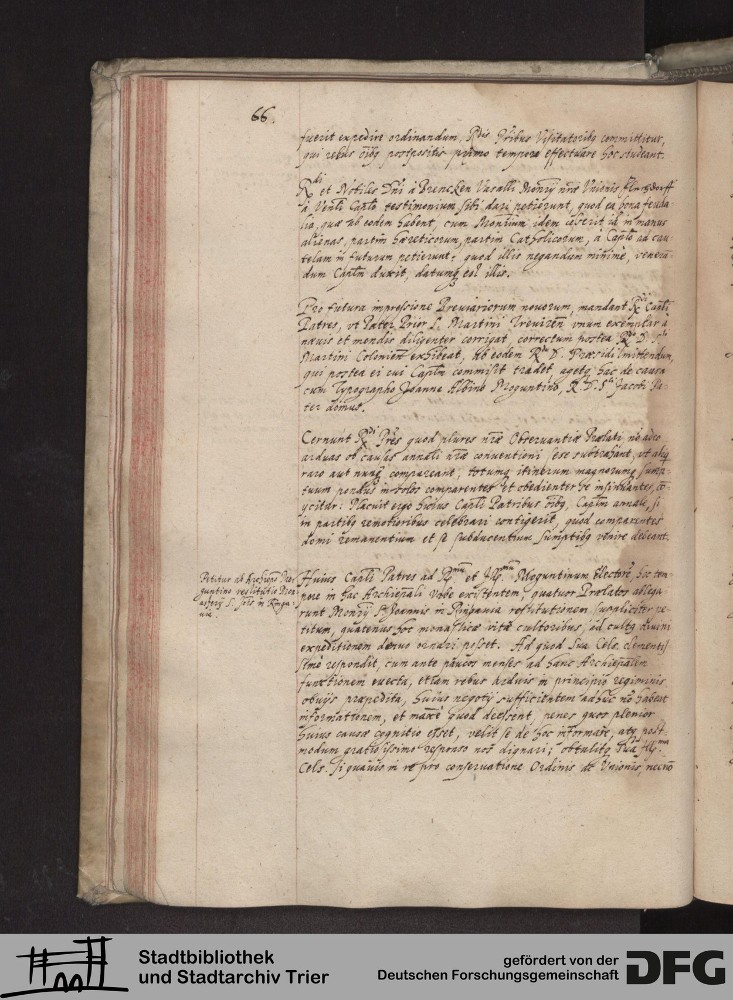 66.
fuerit expedire ordinandum, Rdis Pribus Visitatoribq committitur,
qui rebus oibq postpositis primo tempore effectuare hoc studeant.
Rdi et Nobiles Dni à Brencken Vasalli Monrij nris Unionis,
à Venli Caplo testimonium sibi dari petierunt, quod ea bona feuda-
lia, quae ab eodem habent, cum Monrium idem cesserit in manus
alienas, partim haereticorum, partim Catholicorum, à Caplo ad cau-
telam in futurum petierunt: quod illis negandum minime, veneran-
dum Caplm duxit, datumq illis.
Pro futura impressione Breviariorum novorum, mandant Rdi Capli
Patres, vt Pater Prior S. Martini Treviren vnum exemplar à
naevis et mendis diligenter corrigat, correctum postea Rdo D. Sti
Martini Colonien exhibeat, ab eodem Rdo D. Praesidi mittendum,
qui postea ei cui Caplm commisit tradet, agetq hac de causa
cum Typographo Joanne Albino Moguntino, R. D. Sti Jacobi Pa-
ter domus.
Cernunt Rdi Pres quod plures nrae Observantiae Praelati, nō adeo
arduas ob causas annali nrae conventioni sese subtrahant, vt aliq
raro aut nunq compareant, totumq itinerum magnorumq sump-
tuum pondus in solos comparentes et obedienter se insinuantes,
Placuit ergo huius Capli Patribus oibq, Caplm annale, si
in partibq remotioribus celebrari contigerit, quod comparentes
domi remanentium et se subducentium sumptibq venire debeant.
Petitur ab Archiepo Mo-
guntino restitutio Mon-
asterij S. Jois in Ringa-
via.
Huius Capli Patres ad Rmum et Illmum Moguntinum Electore, hoc tem-
pore in hac Archiepali Vrbe existentem, quatuor Praelatos ablega-
runt Monrij S. Joannis in Ringavia restitutionem suppliciter pe-
titum, quatenus hoc monasticae vitae cultoribus, ad cultq divini
expeditionem denuo ornari posset. Ad quod Sua Cels. clementis-
sime respondit, cum ante paucos menses ad hanc Archiepalem
functionem evecta, etiam rebus arduis in principio regiminis
obuijs praepedita, huius negotij sufficientem adhuc nō habeat
informationem, et maxe quod deessent, penes quos plenior
huius causae cognitio esset, velit se de hoc informare, atq post-
modum gratiosissimo responso nos dignari; obtulitq Sua Illma
Cels. si quauis in re pro conseruatione Ordinis et Vnionis, necnō
Stadtbibliothek
und Stadtarchiv Trier
gefördert von der
Deutschen Forschungsgemeinschaft
DFG